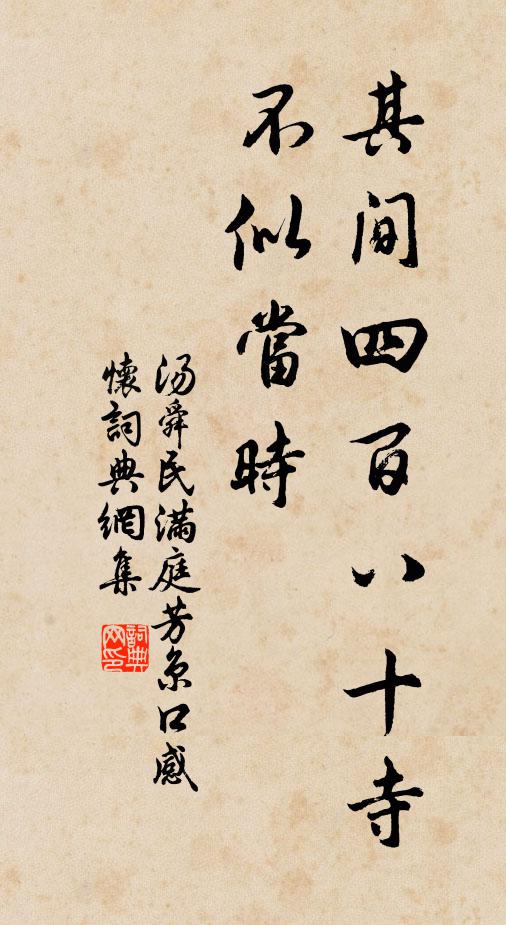 其间四百八十寺
不似當時
汤舜民满庭芳京口感
懷詞典網集
詞典网印